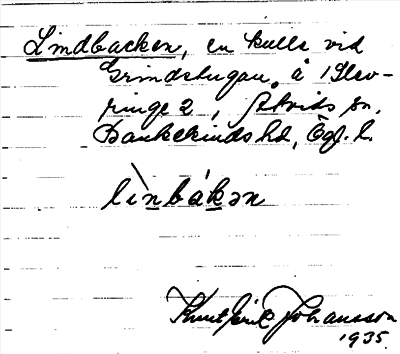 Lindbacken, en kulle vid
Grindstugan å Slev-
ringe 2, Åtvids sn,
Bankekinds hd, Ögl. l.
lìnbákən
Knut Erik Johansson
1935.